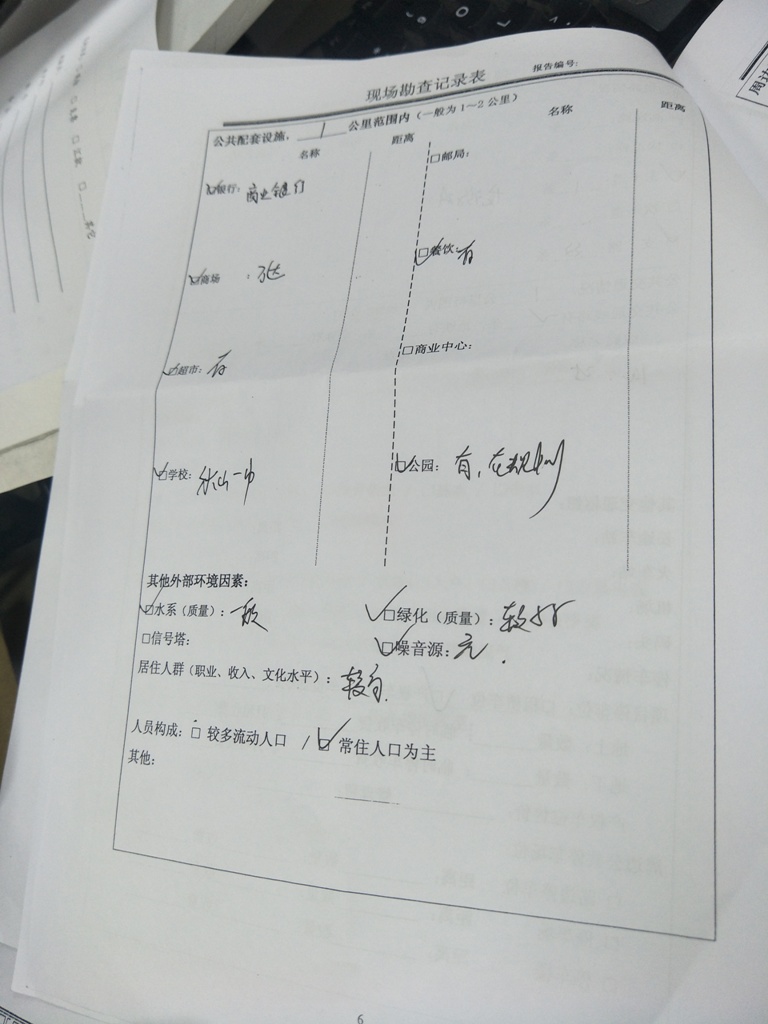 现场勘查记录表
报告编号:
公共配套设施, 1 公里范围内（一般为1～2公里）
名称 距离 名称 距离
☑银行: 商业银行 □邮局:
☑商场 : 万达 ☑餐饮: 有
☑超市: 有 □商业中心:
☑学校: 一中 ☑公园: 有, 在规划
其他外部环境因素:
☑水系（质量）: 一般 ☑绿化（质量）: 较好
□信号塔: ☑噪音源: 无.
居住人群（职业、收入、文化水平）:
人员构成: □ 较多流动人口 / ☑ 常住人口为主
其他:
6